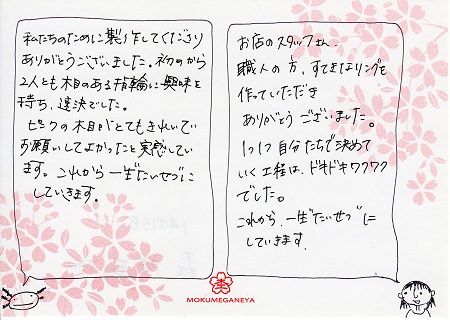 私たちのために製作してくださり
ありがとうございました。初めから
2人とも木目のある指輪に興味を
持ち、速決でした。
ピンクの木目がとてもきれいで
お願いしてよかったと実感してい
ます。これから一生たいせつに
していきます。
お店のスタッフさん、
職人の方、すてきなリングを
作っていただき
ありがとうございました。
1つ1つ自分たちで決めて
いく工程は、ドキドキワクワク
でした。
これから、一生たいせつに
していきます。
MOKUMEGANEYA